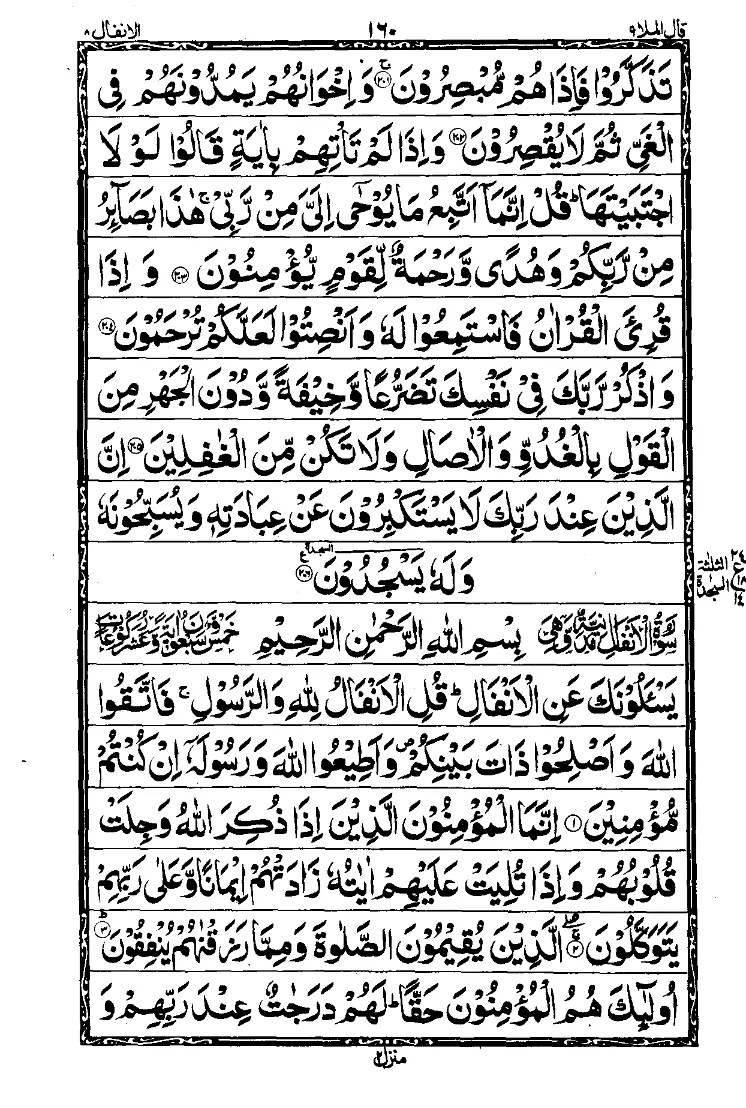 قال الملا٩ ١٦٠ الانفال ٨
تَذَكَّرُوْا فَاِذَا هُمْ مُّبْصِرُوْنَ ۚ‏﴿٢٠١﴾ وَاِخْوَانُهُمْ يَمُدُّوْنَهُمْ فِى
الْغَىِّ ثُمَّ لَا يُقْصِرُوْنَ ﴿٢٠٢﴾ وَاِذَا لَمْ تَاْتِهِمْ بِاٰيَةٍ قَالُوْا لَوْ لَا
اجْتَبَيْتَهَا ؕ قُلْ اِنَّمَاۤ اَتَّبِعُ مَا يُوْحٰٓى اِلَىَّ مِنْ رَّبِّىْ ۚ هٰذَا بَصَآئِرُ
مِنْ رَّبِّكُمْ وَهُدًى وَّرَحْمَةٌ لِّقَوْمٍ يُّؤْمِنُوْنَ ﴿٢٠٣﴾ وَ اِذَا
قُرِئَ الْقُرْاٰنُ فَاسْتَمِعُوْا لَهٗ وَاَنْصِتُوْا لَعَلَّكُمْ تُرْحَمُوْنَ ﴿٢٠٤﴾
وَاذْكُرْ رَّبَّكَ فِىْ نَفْسِكَ تَضَرُّعًا وَّخِيْفَةً وَّدُوْنَ الْجَهْرِ مِنَ
الْقَوْلِ بِالْغُدُوِّ وَالْاٰصَالِ وَلَا تَكُنْ مِّنَ الْغٰفِلِيْنَ ﴿٢٠٥﴾ اِنَّ
الَّذِيْنَ عِنْدَ رَبِّكَ لَا يَسْتَكْبِرُوْنَ عَنْ عِبَادَتِهٖ وَيُسَبِّحُوْنَهٗ
وَلَهٗ يَسْجُدُوْنَ ﴿٢٠٦﴾ السجدة
٢٤ ع ١٨ ١٤ الثلثة السجدة
سُوْرَةُ الْاَنْفَالِ مَدَنِيَّةٌ وَّهِىَ بِسْمِ اللّٰهِ الرَّحْمٰنِ الرَّحِيْمِ خَمْسٌ وَّسَبْعُوْنَ اٰيَةً وَّعَشْرُ رُكُوْعَاتٍ
يَسْئَلُوْنَكَ عَنِ الْاَنْفَالِ ؕ قُلِ الْاَنْفَالُ لِلّٰهِ وَالرَّسُوْلِ ۚ فَاتَّقُوا
اللّٰهَ وَاَصْلِحُوْا ذَاتَ بَيْنِكُمْ ۖ وَاَطِيْعُوا اللّٰهَ وَرَسُوْلَهٗۤ اِنْ كُنْتُمْ
مُّؤْمِنِيْنَ ﴿١﴾ اِنَّمَا الْمُؤْمِنُوْنَ الَّذِيْنَ اِذَا ذُكِرَ اللّٰهُ وَجِلَتْ
قُلُوْبُهُمْ وَاِذَا تُلِيَتْ عَلَيْهِمْ اٰيٰتُهٗ زَادَتْهُمْ اِيْمَانًا وَّعَلٰى رَبِّهِمْ
يَتَوَكَّلُوْنَ ﴿٢﴾ الَّذِيْنَ يُقِيْمُوْنَ الصَّلٰوةَ وَمِمَّا رَزَقْنٰهُمْ يُنْفِقُوْنَ ؕ﴿٣﴾
اُولٰٓئِكَ هُمُ الْمُؤْمِنُوْنَ حَقًّا ؕ لَهُمْ دَرَجٰتٌ عِنْدَ رَبِّهِمْ وَ
منزل ٢